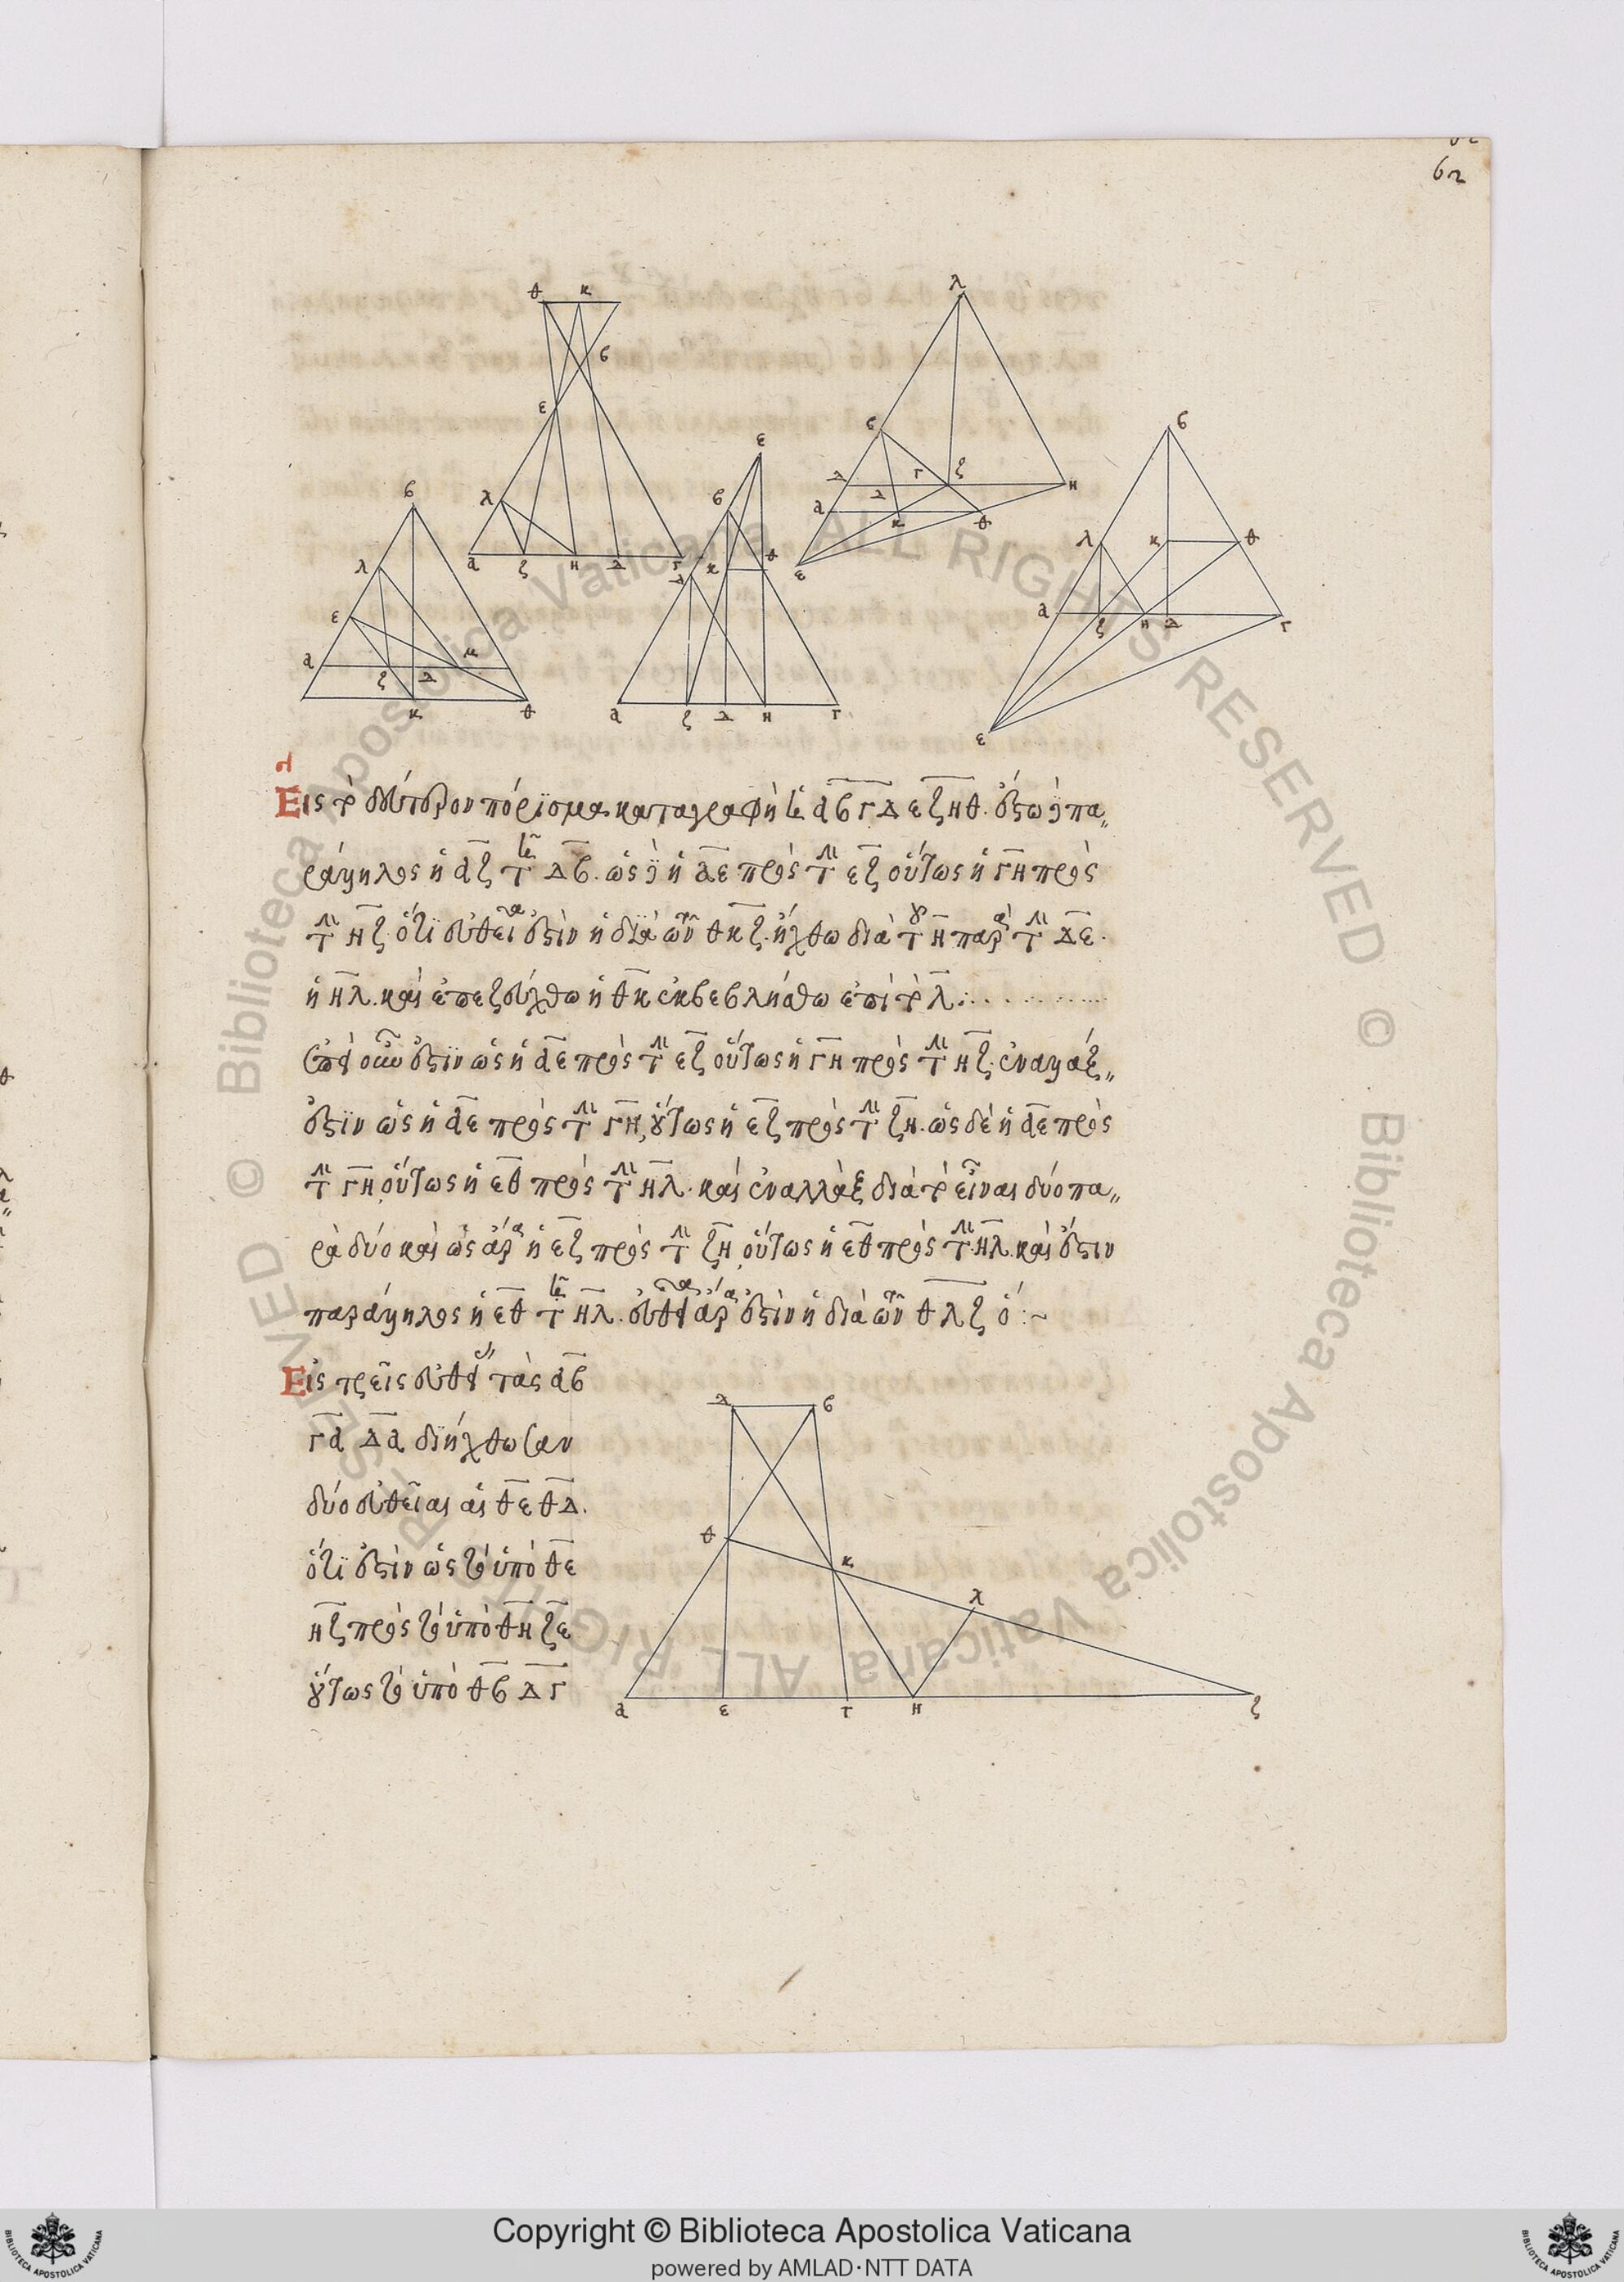 62
θ κ
λ
ϐ
ε
ε
ϐ
ϐ
ϐ
ϐ
Δ Γ ζ Η
λ
Δ
α κ θ
λ
α ζ Η Δ Γ
κ θ
λ κ θ
Δ
ε
ε
α μ
α ζ Η Δ Γ
ζ Δ
κ θ
α ζ Δ Η Γ
ε
Εἰς τὸ δεύτερον πόρϊσμα καταγραφὴ ἡ αϐγδεζηθ. ἔστω δὲ πα„
ράλληλος ἡ αζ τῇ Δϐ. ὡς δὲ ἡ αε πρὸς τὴν εζ οὕτως ἡ γη πρὸς
τὴν ηζ. ὅτϊ εὐθεῖα ἐστὶν ἡ διὰ τῶν θκζ. ἤχθω διὰ τοῦ η παρὰ τὴν Δε.
ἡ ηλ. καὶ ἐπεζεύχθω ἡ θκ ἐκβεβλήσθω ἐπὶ τὸ λ:.
ἐπεὶ οὖν ἐστϊν ὡς ἡ αε πρὸς τὴν εζ οὕτως ἡ γη πρὸς τὴν ηζ. ἐναλλάξ„
ἐστϊν ὡς ἡ αε πρὸς τὴν γη, οὕτως ἡ εζ πρὸς τὴν ζη. ὡς δὲ ἡ αε πρὸς
τὴν γη, οὕτως ἡ εθ πρὸς τὴν ηλ. καὶ ἐναλλὰξ διὰ τὸ εἶναι δύο πα„
ρὰ δύο καὶ ὡς ἄρα ἡ εζ πρὸς τὴν ζη, οὕτως ἡ εθ πρὸς τὴν ηλ. καὶ ἔστιν
παράλληλος ἡ εθ τῇ ηλ. εὐθεῖα ἄρα ἐστὶν ἡ διὰ τῶν θλζ ὁ:~
Εἰς τρεῖς εὐθείας τὰς αϐ
γα Δα διήχθωσαν
δύο εὐθεῖαι αἱ θε θΔ.
ὅτϊ ἐστὶν ὡς τὸ ὑπὸ θε
ηζ πρὸς τὸ ὑπὸ θη ζε
οὕτως τὸ ὑπὸ θϐ Δγ
Δ ϐ
θ
κ
λ
α ε Γ Η ζ
Copyright © Biblioteca Apostolica Vaticana
powered by AMLAD·NTT DATA
© Biblioteca Apostolica Vaticana ALL RIGHTS RESERVED © Biblioteca Apostolica Vaticana ALL RIGHTS RESERVED